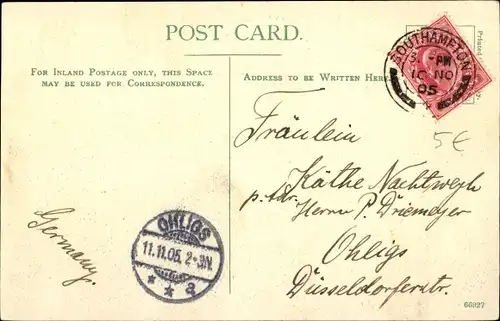 POST CARD.
FOR INLAND POSTAGE ONLY, THIS SPACE
MAY BE USED FOR CORRESPONDENCE.
ADDRESS TO BE WRITTEN HERE.
SOUTHAMPTON
PM
10 NO
05
5€
Fräulein
Käthe Nachtwegh
p. adr. Herrn P. Driemeyer
Ohligs
Düsseldorferstr.
Germany.
OHLIGS
11.11.05. 2-3N
* * a
Printed
66327